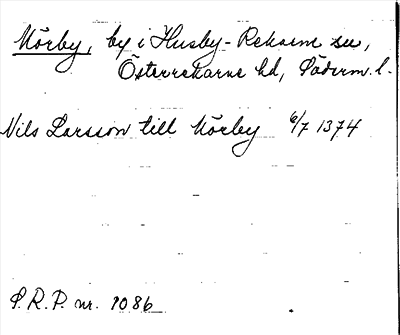 Mörby, by i Husby-Rekarne sn,
Österrekarne hd, Söderm. l.
Nils Larsson till Mörby 6/7 1374
S.R.P. nr. 1086